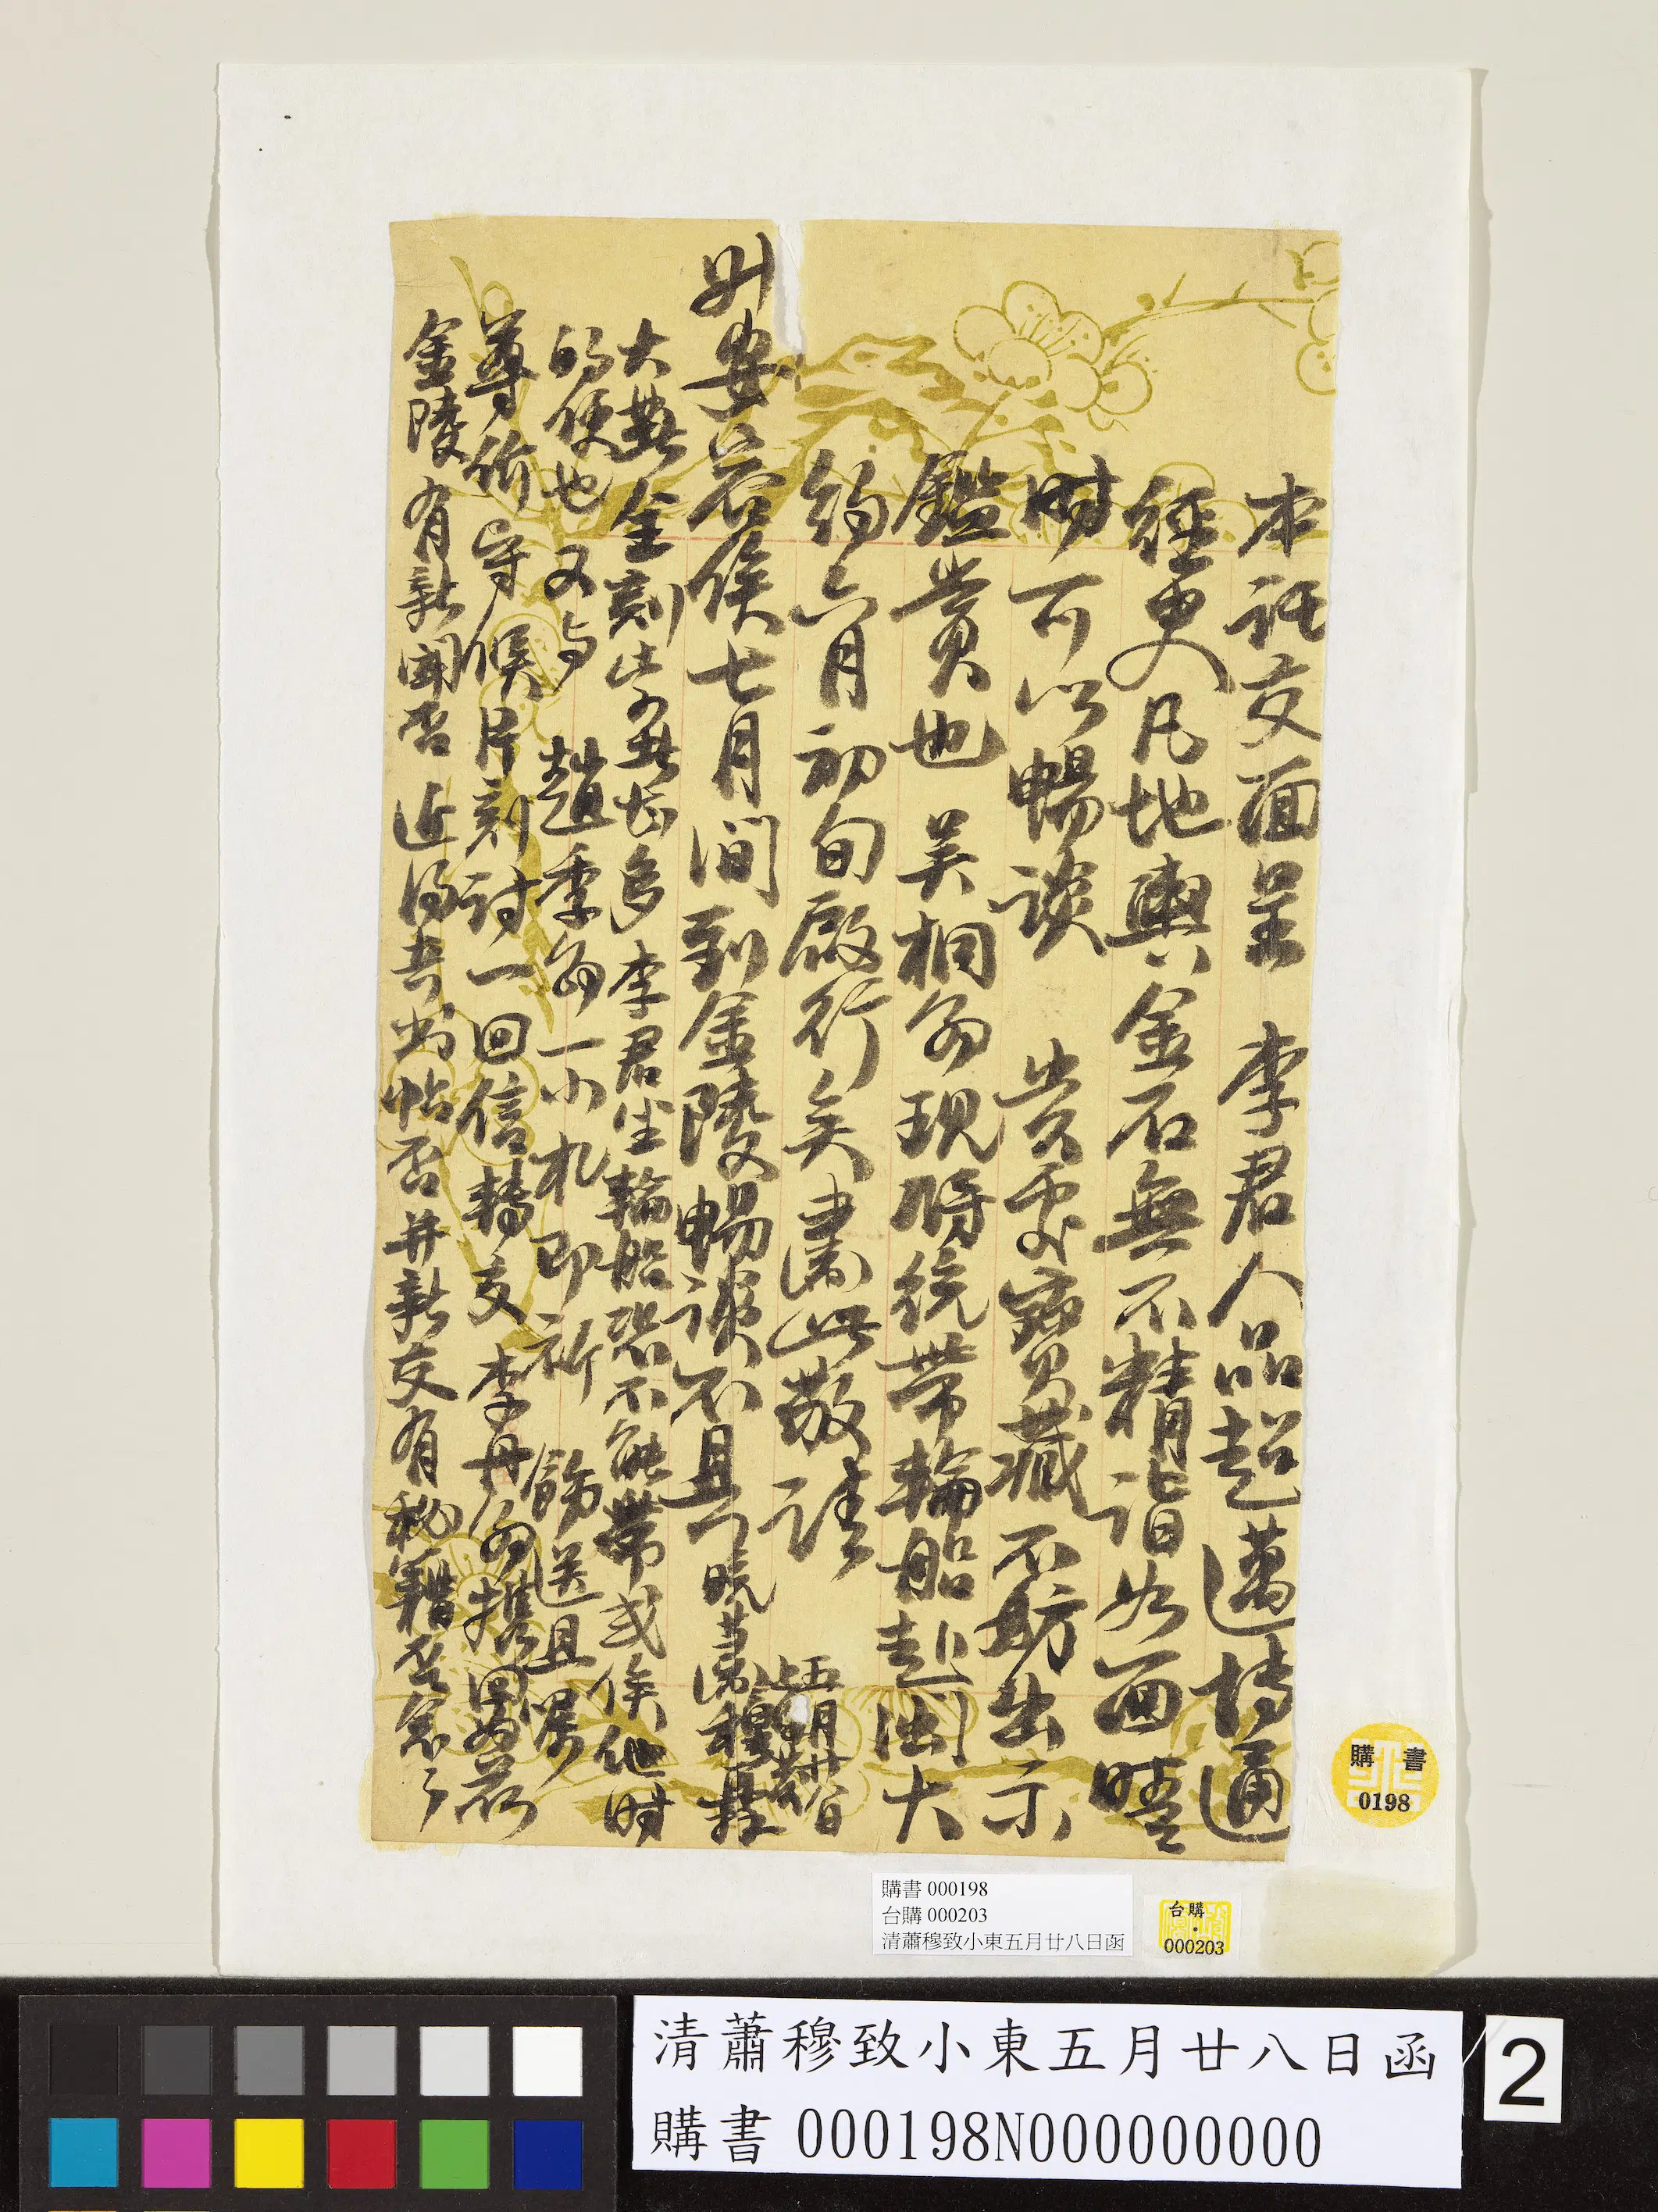 本託交面呈 李君人品超邁博通
經史凡地輿金石無不精詣如面晤
時可以暢談 貴處寶藏不妨出示
鑑賞也 吳桐翁現時統帶輪船赴閩大
約六月初旬啟行矣肅此敬請
升安 五月廿八日
若俟七月間到金陵暢談不具 晚蕭穆拜
大 全刻 多李君坐輪船恐不能帶或俟他時
的便也又与 趙季翁一小札即祈 飭送且屬
尊价守候片刻討一回信轉交 李丹翁攜回為荷
金陵有新聞否近得古書帖否并新交有秘籍否念々
購書
0198
購書 000198
台購 000203
清蕭穆致小東五月廿八日函
台購
000203
清蕭穆致小東五月廿八日函
購書 000198N000000000
2